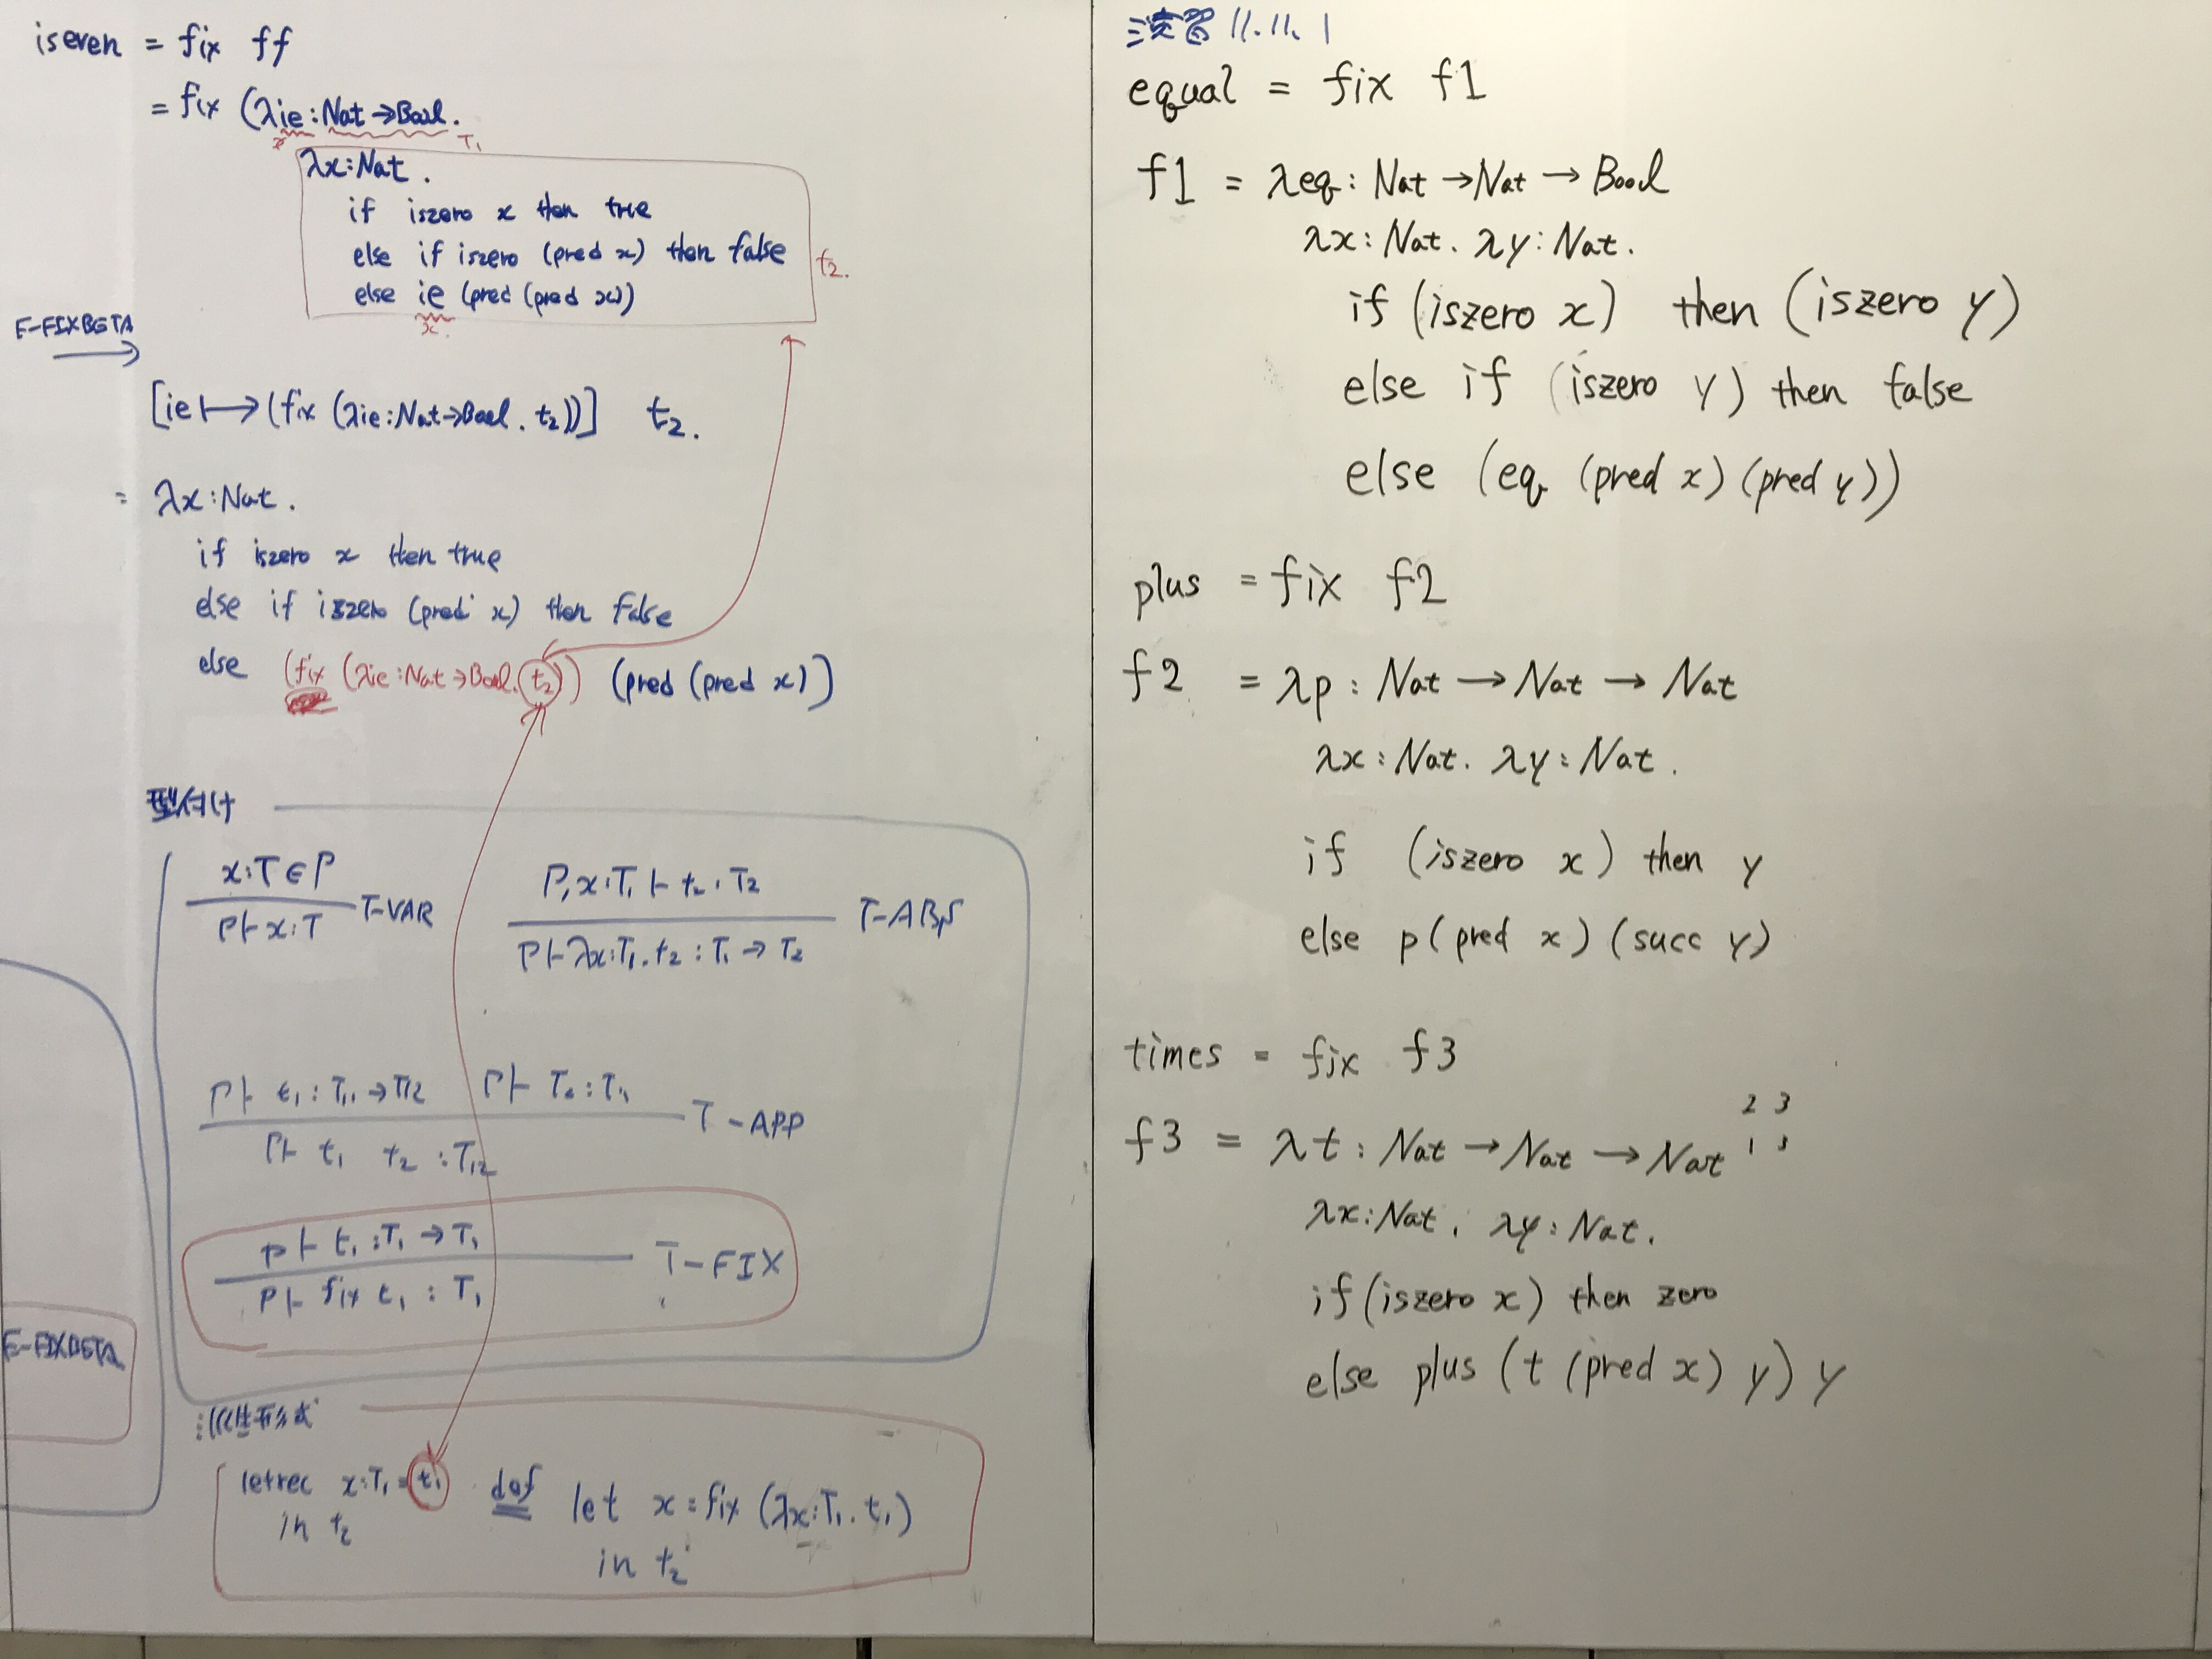 iseven = fix ff
= fix (λie:Nat→Bool.
x T₁
λx:Nat.
if iszero x then true
else if iszero (pred x) then false
t₂.
else ie (pred (pred x))
x.
E-FIXBETA
→
[ie↦(fix (λie:Nat→Bool. t₂))] t₂.
= λx:Nat.
if iszero x then true
else if iszero (pred x) then false
else (fix (λie:Nat→Bool. t₂)) (pred (pred x))
型付け
x:T∈Γ
Γ⊢x:T
T-VAR
Γ,x:T₁ ⊢ t₂:T₂
Γ⊢λx:T₁.t₂:T₁→T₂
T-ABS
Γ⊢ t₁:T₁₁→T₁₂ Γ⊢ T₂:T₁₁
Γ⊢ t₁ t₂ :T₁₂
T-APP
Γ⊢ t₁:T₁→T₁
Γ⊢ fix t₁ : T₁
T-FIX
E-FIXBETA
派生形式
letrec x:T₁=t₁ def let x=fix (λx:T₁.t₁)
in t₂ in t₂
演習 11.11.1
equal = fix f1
f1 = λeq: Nat→Nat→Bool
λx:Nat. λy:Nat.
if (iszero x) then (iszero y)
else if (iszero y) then false
else (eq (pred x)(pred y))
plus = fix f2
f2 = λp: Nat→Nat→Nat
λx:Nat. λy:Nat.
if (iszero x) then y
else p(pred x)(succ y)
times = fix f3
2 3
f3 = λt: Nat→Nat→Nat 1 3
λx:Nat. λy:Nat.
if(iszero x) then zero
else plus (t (pred x) y) y